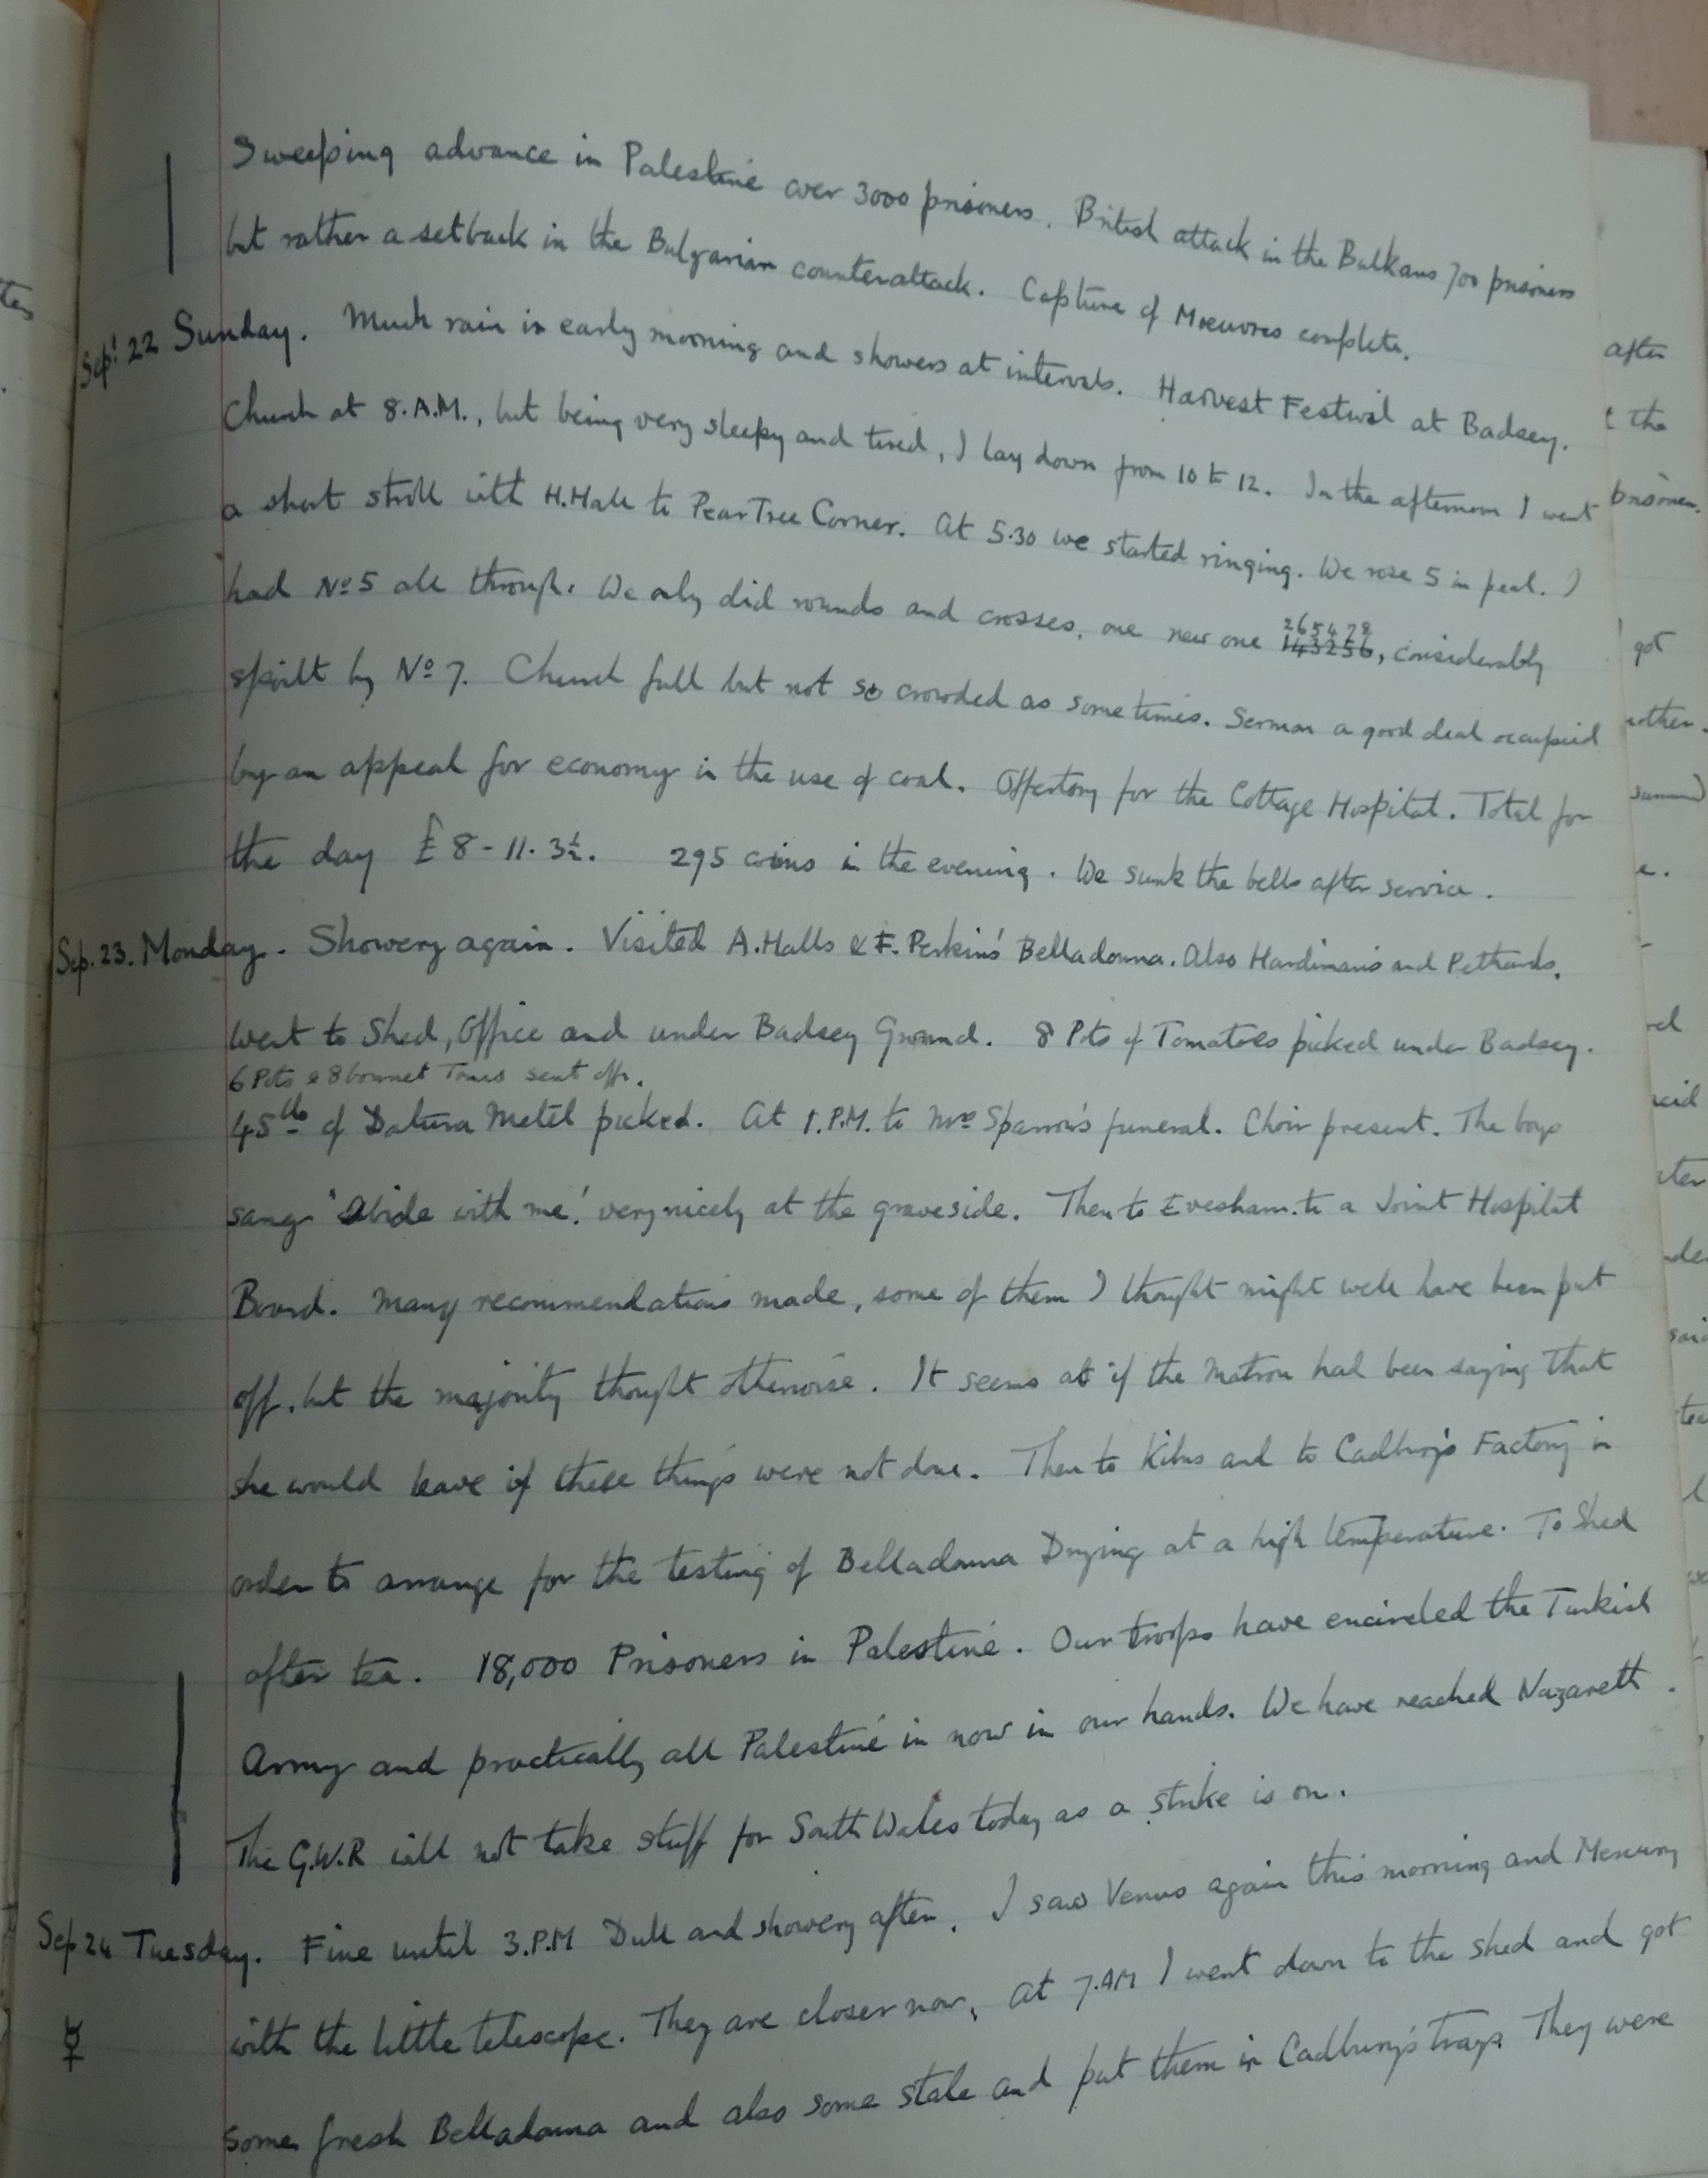 Sweeping advance in Palestine over 3000 prisoners. British attack in the Balkans 700 prisoners
but rather a setback in the Bulgarian counterattack. Capture of Moeuvres complete.
Sept 22 Sunday. Much rain in early morning and showers at intervals. Harvest Festival at Badsey.
Church at 8.A.M., but being very sleepy and tired, I lay down from 10 to 12. In the afternoon I went
a short stroll with H.Hall to Pear Tree Corner. At 5.30 we started ringing. We rose 5 in peal. I
had No 5 all through. We only did rounds and crosses, one new one 265478 143256, considerably
spoilt by No 7. Church full but not so crowded as sometimes. Sermon a good deal occupied
by an appeal for economy in the use of coal. Offertory for the Cottage Hospital. Total for
the day £8-11.3½. 295 coins in the evening. We sunk the bells after service.
Sep. 23. Monday. Showery again. Visited A.Halls & F. Perkins' Belladonna. Also Hardiman's and Pethards.
Went to Shed, Office and under Badsey Ground. 8 Pots of Tomatoes picked under Badsey.
6 Pots & 8 bonnet Toms sent off.
45lbs of Datura Metel picked. At 1.P.M. to Mrs Sparrow's funeral. Choir present. The boys
sang 'Abide with me' very nicely at the graveside. Then to Evesham to a Joint Hospital
Board. Many recommendations made, some of them I thought might well have been put
off, but the majority thought otherwise. It seems as if the Matron had been saying that
she would leave if these things were not done. Then to Kilns and to Cadbury's Factory in
order to arrange for the testing of Belladonna Drying at a high temperature. To Shed
after tea. 18,000 Prisoners in Palestine. Our troops have encircled the Turkish
Army and practically all Palestine in now in our hands. We have reached Nazareth.
The G.W.R will not take stuff for South Wales today as a strike is on.
Sep 24 Tuesday. Fine until 3.P.M Dull and showery after. I saw Venus again this morning and Mercury
☿ with the little telescope. They are closer now. At 7.AM I went down to the shed and got
some fresh Belladonna and also some stale and put them in Cadbury's trays. They were